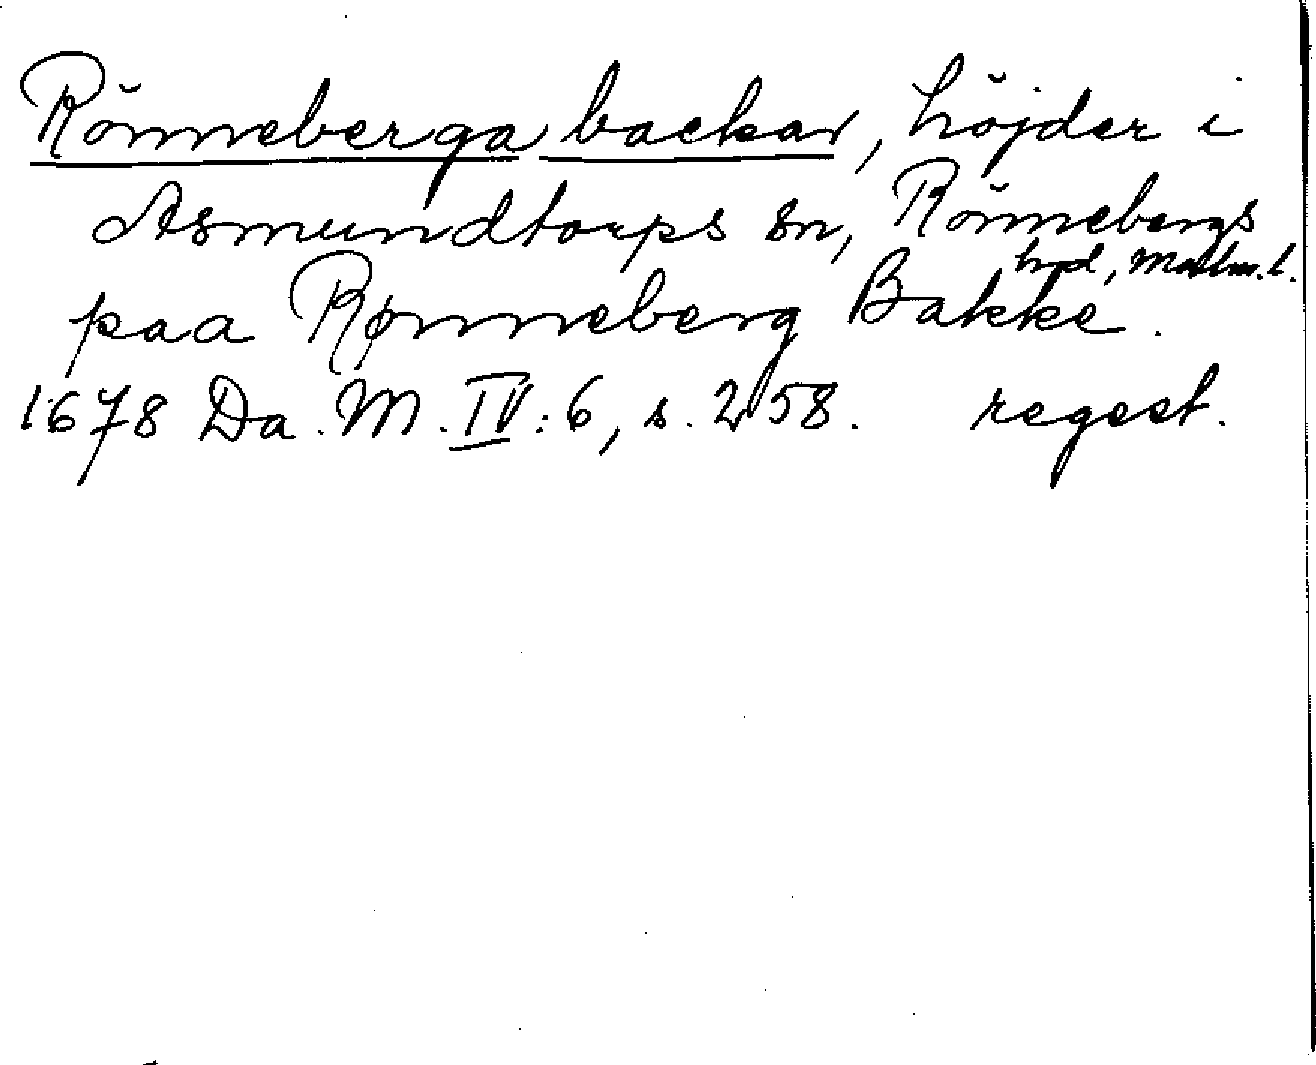 Rönneberga backar, höjder i
Asmundtorps sn, Rönnebergs
hrd, Malm. l.
paa Rønneberg Bakke.
1678 Da. M. IV: 6, s. 258. regest.